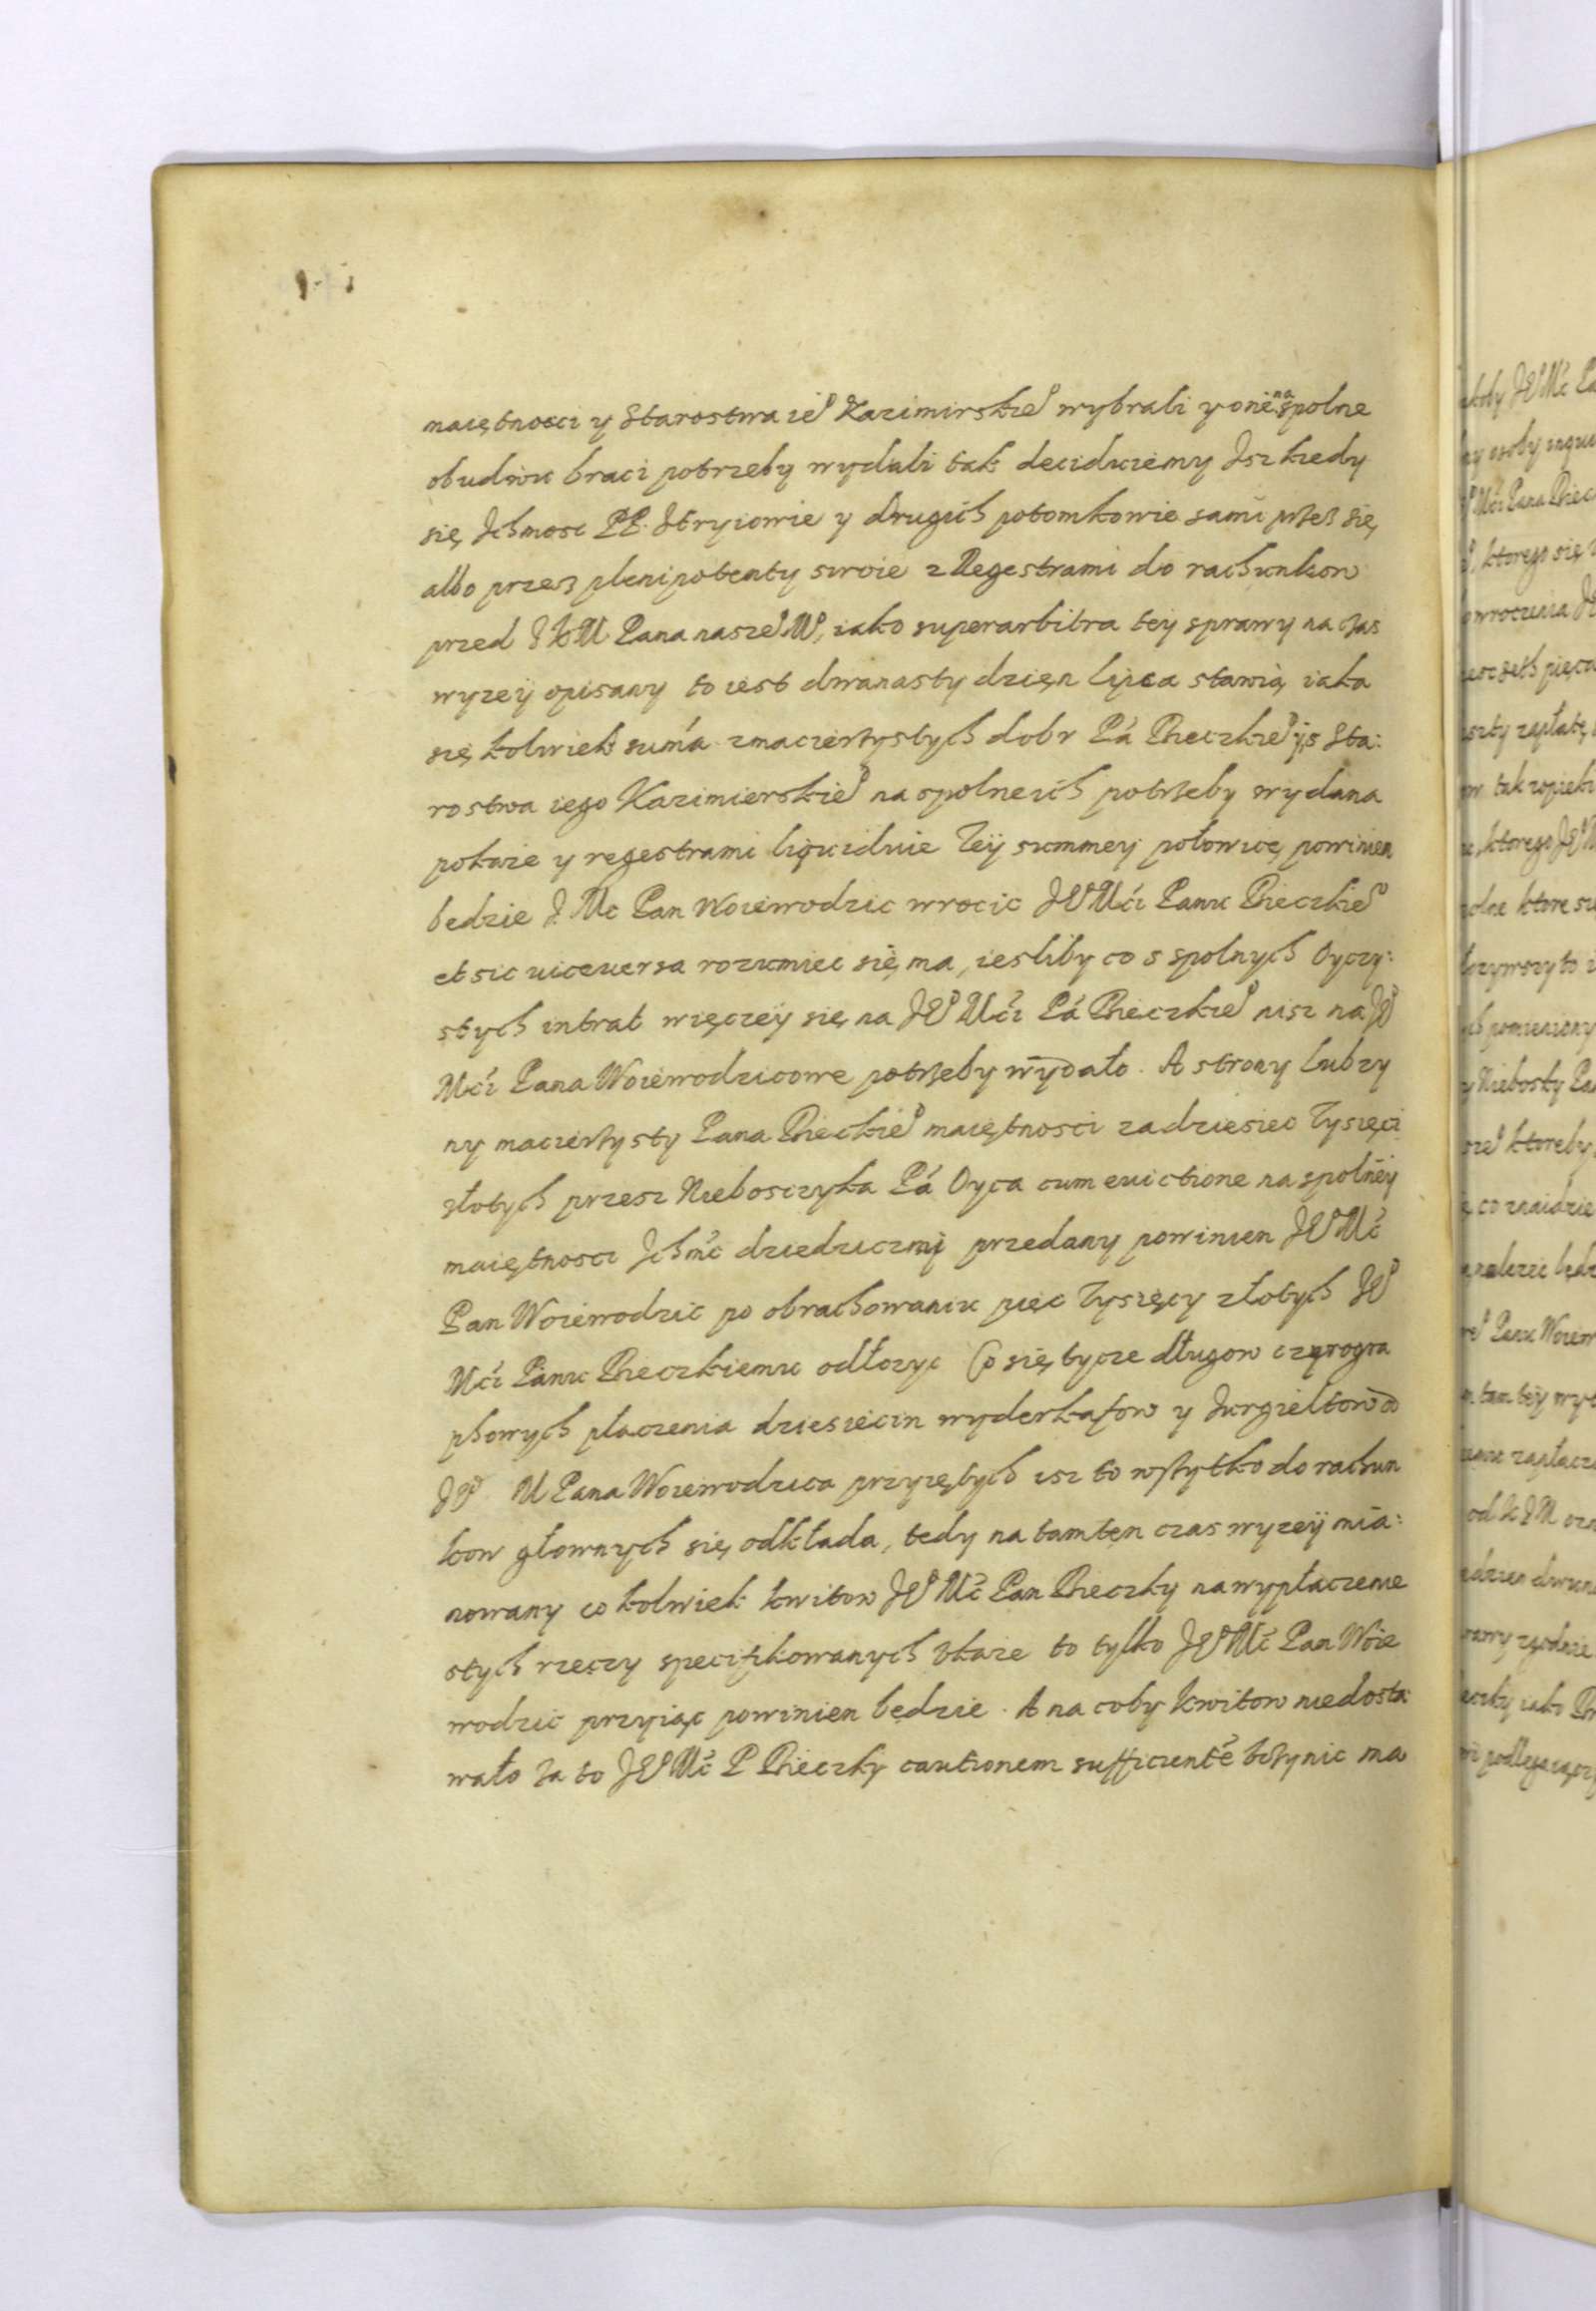 maiętnosci y Starostwa ie° Kazimirskie° wybrali y one na spolne
obudwu braci potrzeby wydali tak deciduiemy Isz kiedy
się Ichmosc PP. Stryiowie y drugich potomkowie sami przes się
albo przes plenipotenty swoie z Regestrami do rachunkow
przed J K M Pana nasze° M°, iako superarbitra tey sprawy na czas
wyzey opisany to iest dwanasty dzięn lipca stawią iaka
się kolwiek sumá z macierzystych dobr Pá Rzeczkie° ys Sta:
rostwa iego Kazimierskie° na spolne ich potrzeby wydana
pokaze y regestrami liquiduie Tey summey połowicę powinien
będzie J Mc Pan Woiewodzic wrocic J° Mći Panu Rzeczkie°
et sic uiceuersa rozumiec się ma, iesliby co s spolnych Oyczy:
stych intrat więczey się na J° Mći Pá Rzeczkie° nisz na J°
Mći Pana Woiewodzicowe potrzeby wydało. A strony Lubzy
ny macierzysty Pana Rzeckie° maiętnosci za dziesiec Tysięci
złotych przesz Nieboszczyka Pá Oyca cum euictione na spolney
maiętnosci Ichmć dziedziczny przedany powinien J° Mć
Pan Woiewodzic po obrachowaniu pięc Tysięcy złotych J°
Mći Panu Rzeczkiemu odłozyc Co się tycze długow czyrogra
phowych płaczenia dziesiecin wyderkafow y Jurgieltow od
J° M Pana Woiewodzica przyiętych isz to wszytko do rachun
kow głownych się odkłada, tedy na tamten czas wyzey mia:
nowany co kolwiek kwitow J° Mć Pan Rzeczky na wypłaczenie
stych rzeczy specifikowanych vkaze to tylko J° Mć Pan Woie
wodzic przyiąc powinien będzie. A na coby kwitow niedosta:
wało za to J° Mć P Rzeczky cautionem sufficientē vczynic ma